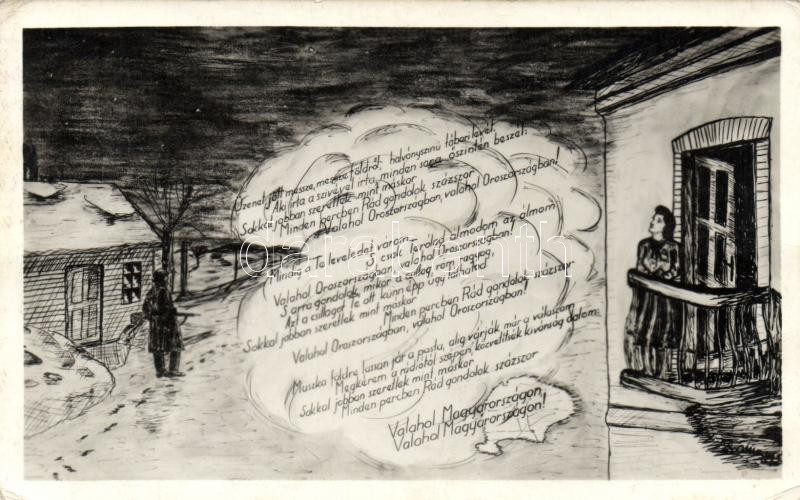 Üzenet jött messze, messze földről: halványszínű tábori levél,
Aki írta a szívével írta, minden sora őszintén beszél:
Sokkal jobban szeretlek mint máskor
Minden percben Rád gondolok százszor
Valahol Oroszországban, valahol Oroszországban!
Mindig a Te leveledet várom,
S csak Terólad álmodom az álmom
Valahol Oroszországban, valahol Oroszországban!
S arra gondolok, mikor a csillag rám ragyog,
Azt a csillagot Te ott künn épp úgy láthatod
Sokkal jobban szeretlek mint máskor
Minden percben Rád gondolok százszor
Valahol Oroszországban, valahol Oroszországban!
Muszka földre lassan jár a posta, alig várják már a válaszom
Megkérem a rádiótól szépen, közvetítsék kívánság dalom:
Sokkal jobban szeretlek mint máskor
Minden percben Rád gondolok százszor
Valahol Magyarországon,
Valahol Magyarországon!
darabanth